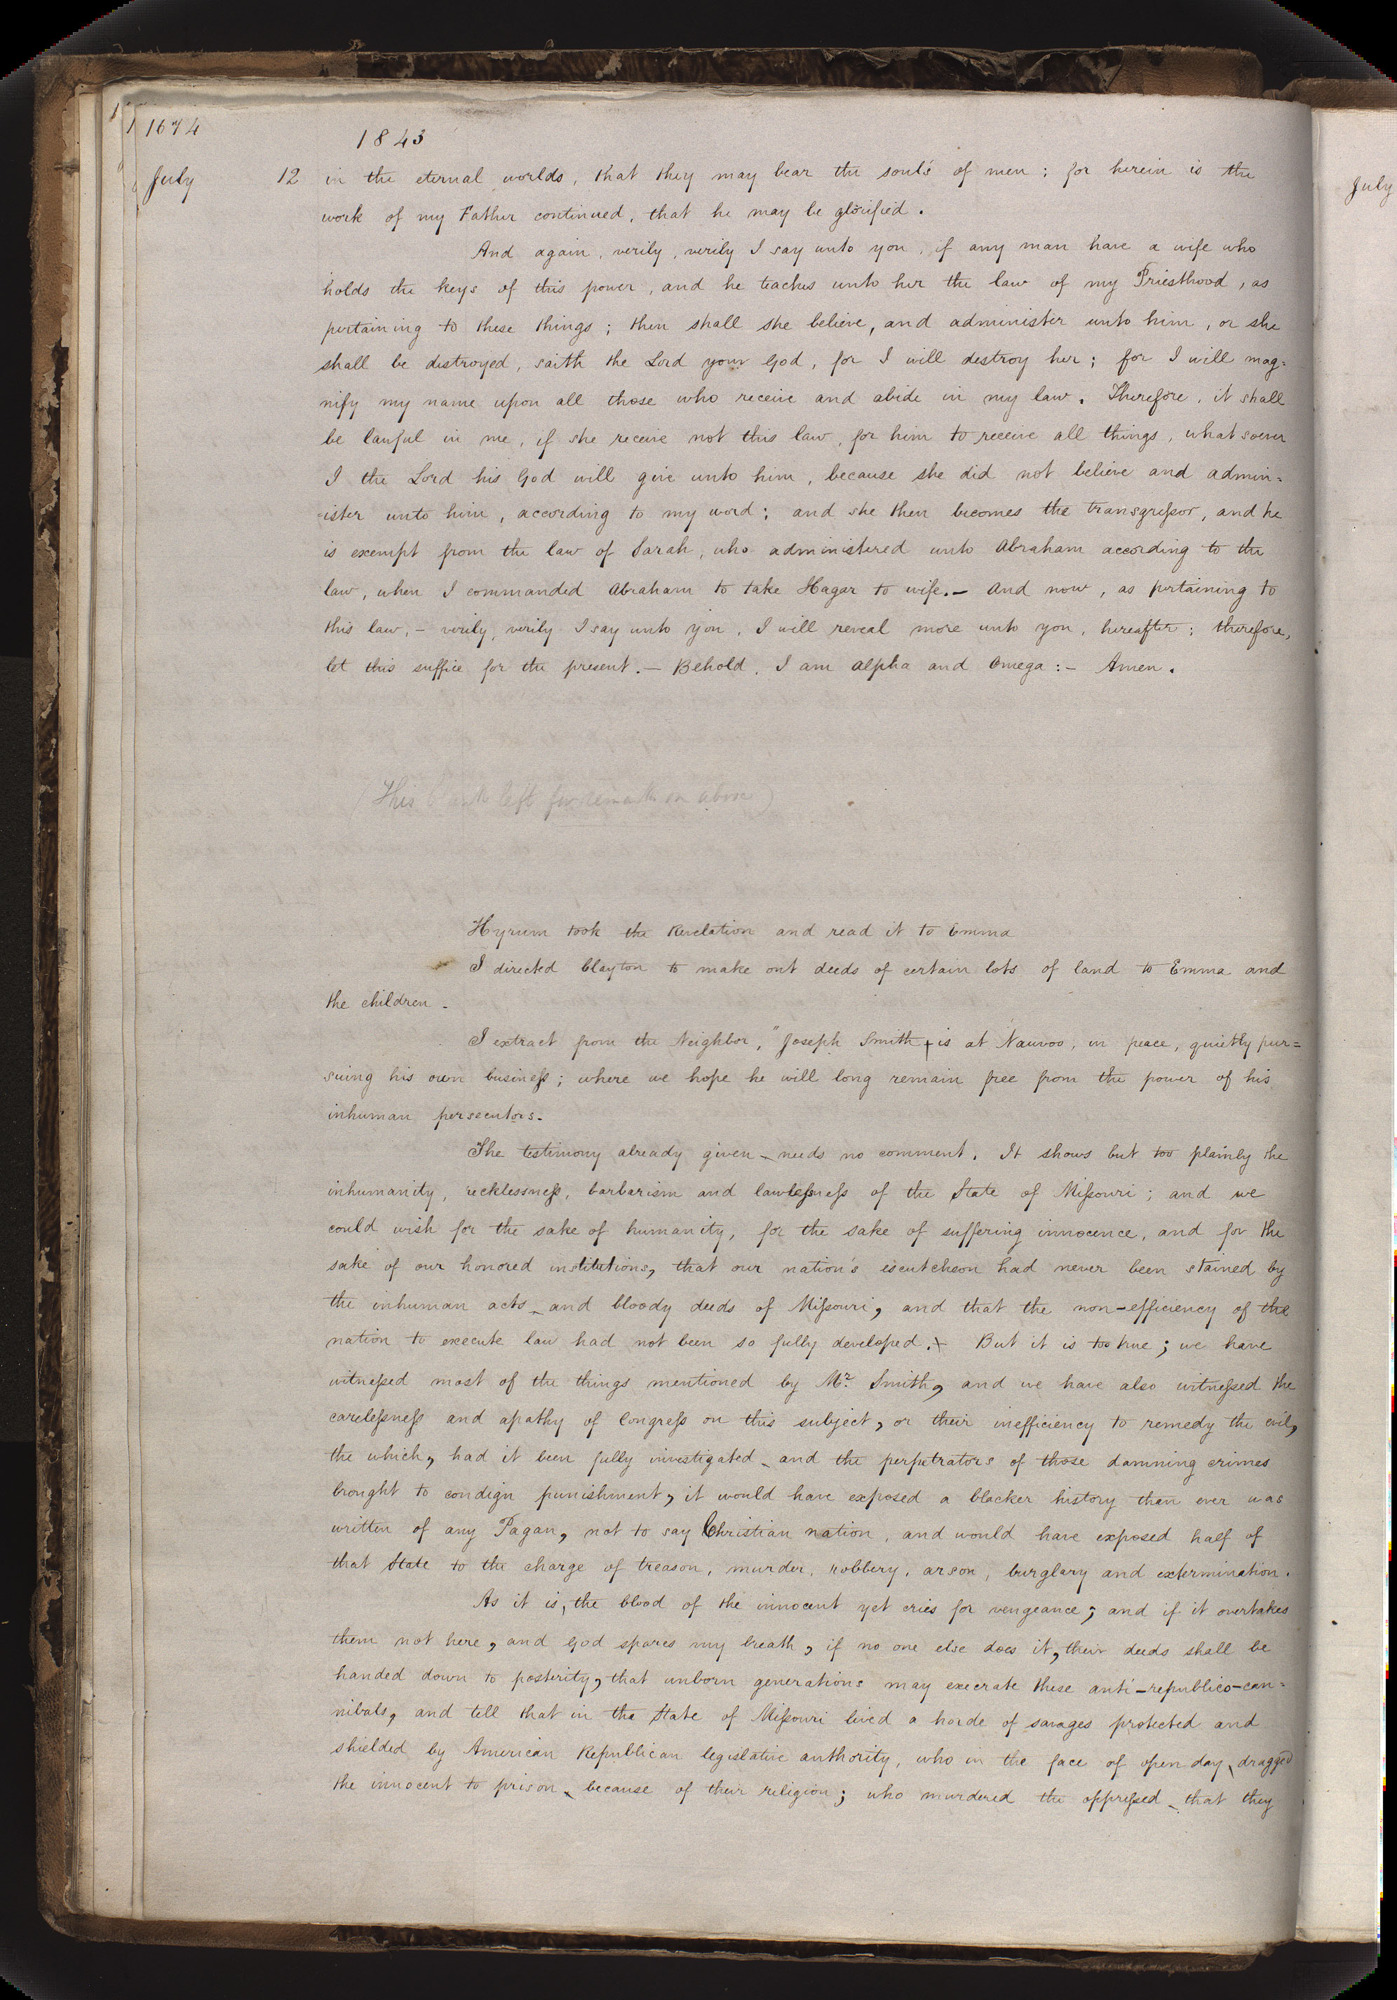 1674
1843
July 12 in the eternal worlds, that they may bear the souls of men; for herein is the
work of my Father continued, that he may be glorified.
And again, verily, verily I say unto you, if any man have a wife who
holds the keys of this power, and he teaches unto her the law of my Priesthood, as
pertaining to these things; then shall she believe, and administer unto him, or she
shall be destroyed, saith the Lord your God, for I will destroy her; for I will mag=
nify my name upon all those who receive and abide in my law. Therefore, it shall
be lawful in me, if she receive not this law, for him to receive all things, whatsoever
I the Lord his God will give unto him, because she did not believe and admin=
ister unto him, according to my word; and she then becomes the transgressor, and he
is exempt from the law of Sarah, who administered unto Abraham according to the
law, when I commanded Abraham to take Hagar to wife.— And now, as pertaining to
this law,— verily, verily I say unto you, I will reveal more unto you, hereafter; therefore,
let this suffice for the present.— Behold, I am Alpha and Omega:— Amen.
(This blank left for remarks on above)
Hyrum took the Revelation and read it to Emma
I directed Clayton to make out deeds of certain lots of land to Emma and
the children.
I extract from the Neighbor, "Joseph Smith + is at Nauvoo, in peace, quietly pur=
suing his own business; where we hope he will long remain free from the power of his
inhuman persecutors.
The testimony already given needs no comment. It shows but too plainly the
inhumanity, recklessness, barbarism and lawlessness of the State of Missouri; and we
could wish for the sake of humanity, for the sake of suffering innocence, and for the
sake of our honored institutions, that our nation's escutcheon had never been stained by
the inhuman acts and bloody deeds of Missouri, and that the non-efficiency of the
nation to execute law had not been so fully developed.+ But it is too true; we have
witnessed most of the things mentioned by Mr. Smith, and we have also witnessed the
carelessness and apathy of Congress on this subject, or their inefficiency to remedy the evil,
the which, had it been fully investigated and the perpetrators of those damning crimes
brought to condign punishment, it would have exposed a blacker history than ever was
written of any Pagan, not to say Christian nation, and would have exposed half of
that State to the charge of treason, murder, robbery, arson, burglary and extermination.
As it is, the blood of the innocent yet cries for vengeance; and if it overtakes
them not here, and God spares my breath, if no one else does it, their deeds shall be
handed down to posterity, that unborn generations may execrate these anti-republico-can=
nibals, and tell that in the State of Missouri lived a horde of savages protected and
shielded by American Republican legislative authority, who in the face of open day, dragged
the innocent to prison, because of their religion; who murdered the oppressed that they
July